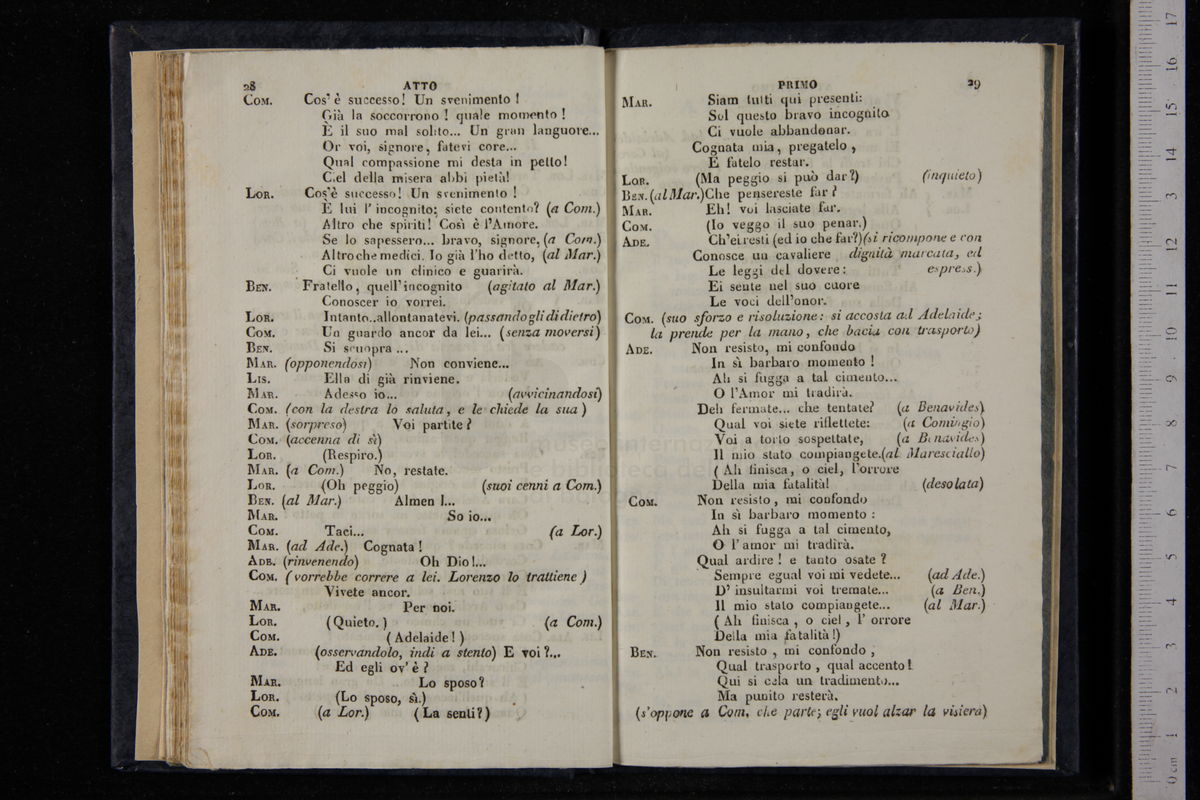 28 ATTO
COM. Cos' è successo! Un svenimento!
Già la soccorrono! quale momento!
È il suo mal solito... Un gran languore...
Or voi, signore, fatevi core...
Qual compassione mi desta in petto!
Ciel della misera abbi pietà!
LOR. Cos'è successo! Un svenimento!
È lui l'incognito; siete contento? (a Com.)
Altro che spiriti! Così è l'Amore.
Se lo sapessero... bravo, signore, (a Com.)
Altro che medici. Io già l'ho detto, (al Mar.)
Ci vuole un clinico e guarirà.
BEN. Fratello, quell'incognito (agitato al Mar.)
Conoscer io vorrei.
LOR. Intanto..allontanatevi. (passandogli di dietro)
COM. Un guardo ancor da lei... (senza moversi)
BEN. Si scuopra...
MAR. (opponendosi) Non conviene...
LIS. Ella di già rinviene.
MAR. Adesso io... (avvicinandosi)
COM. (con la destra lo saluta, e le chiede la sua)
MAR. (sorpreso) Voi partite?
COM. (accenna di sì)
LOR. (Respiro.)
MAR. (a Com.) No, restate.
LOR. (Oh peggio) (suoi cenni a Com.)
BEN. (al Mar.) Almen l...
MAR. So io...
COM. Taci... (a Lor.)
MAR. (ad Ade.) Cognata!
ADE. (rinvenendo) Oh Dio!...
COM. (vorrebbe correre a lei. Lorenzo lo trattiene)
Vivete ancor.
MAR. Per noi.
LOR. (Quieto.) (a Com.)
COM. (Adelaide!)
ADE. (osservandolo, indi a stento) E voi?...
Ed egli ov' è?
MAR. Lo sposo?
LOR. (Lo sposo, sì.)
COM. (a Lor.) (La senti?)
PRIMO 29
MAR. Siam tutti qui presenti:
Sol questo bravo incognito
Ci vuole abbandonar.
Cognata mia, pregatelo,
E fatelo restar.
LOR. (Ma peggio si può dar?) (inquieto)
BEN. (al Mar.) Che pensereste far?
MAR. Eh! voi lasciate far.
COM. (Io veggo il suo penar.)
ADE. Ch'ei resti (ed io che far?) (si ricompone e con
Conosce un cavaliere dignità marcata, ed
Le leggi del dovere: espress.)
Ei sente nel suo cuore
Le voci dell'onor.
COM. (suo sforzo e risoluzione: si accosta ad Adelaide;
la prende per la mano, che bacia con trasporto)
ADE. Non resisto, mi confondo
In sì barbaro momento!
Ah si fugga a tal cimento...
O l'Amor mi tradirà.
Deh fermate... che tentate? (a Benavides)
Qual voi siete riflettete: (a Comingio)
Voi a torto sospettate, (a Benavides)
Il mio stato compiangete.(al Maresciallo)
(Ah finisca, o ciel, l'orrore
Della mia fatalità! (desolata)
COM. Non resisto, mi confondo
In sì barbaro momento:
Ah si fugga a tal cimento,
O l'amor mi tradirà.
Qual ardire! e tanto osate?
Sempre egual voi mi vedete... (ad Ade.)
D' insultarmi voi tremate... (a Ben.)
Il mio stato compiangete... (al Mar.)
(Ah finisca, o ciel, l' orrore
Della mia fatalità!)
BEN. Non resisto, mi confondo,
Qual trasporto, qual accento!
Qui si cela un tradimento...
Ma punito resterà.
(s'oppone a Com. che parte; egli vuol alzar la visiera)